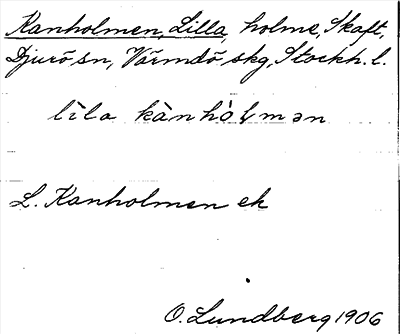 Kanholmen, Lilla, holme, Skaft,
Djurö sn, Värmdö skg, Stockh. l.
lìla kànhòlmən
L. Kanholmen ek
O. Lundberg 1906